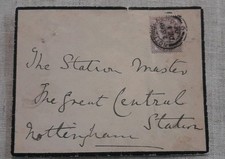 The Station Master
The Great Central
Station
Nottingham